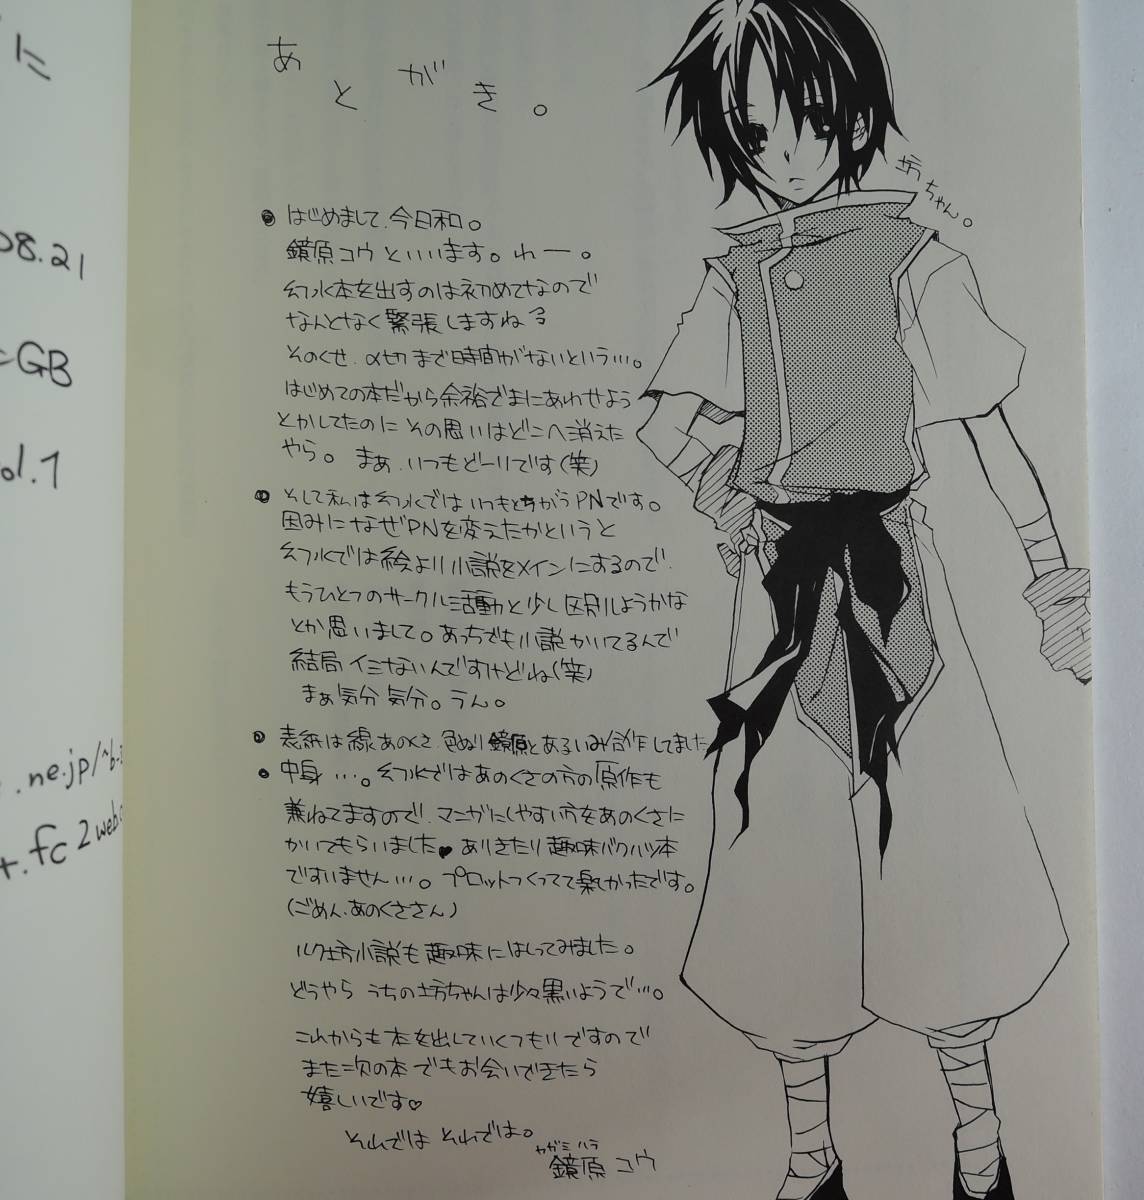 に
08.21
GB
ol.1
.ne.jp/~b-
.fc2web.
あとがき。
坊ちゃん。
● はじめまして、今日和。
鏡原コウといいます。れー。
幻水本を出すのは初めてなので
なんとなく緊張しますね
そのくせ、〆切まで時間がないという…。
はじめての本だから余裕でまにあわせよう
とかしてたのにその思いはどこへ消えた
やら。まぁ、いつもどーりです(笑)
● そして私は幻水ではいつもとちがうPNです。
因みになぜPNを変えたかというと
幻水では絵より小説をメインにするので、
もうひとつのサークル活動と少し区別しようかな
とか思いまして。あっちでも小説かいてるんで
結局イミないんですけどね(笑)
まぁ気分気分。うん。
● 表紙は線あのくさ、色ぬり鏡原とあるいみ合作してました
● 中身…。幻水ではあのくさの方の原作も
兼ねてますので、マンガにしやすい方をあのくさに
かいてもらいました♥ ありきたり趣味バクハツ本
ですいません…。プロットつくってて楽しかったです。
(ごめん、あのくささん)
ルク坊小説も趣味にはしってみました。
どうやらうちの坊ちゃんは少々黒いようで…。
これからも本を出していくつもりですので
また次の本でもお会いできたら
嬉しいです♡
それでは それでは。
カガミハラ
鏡原 コウ